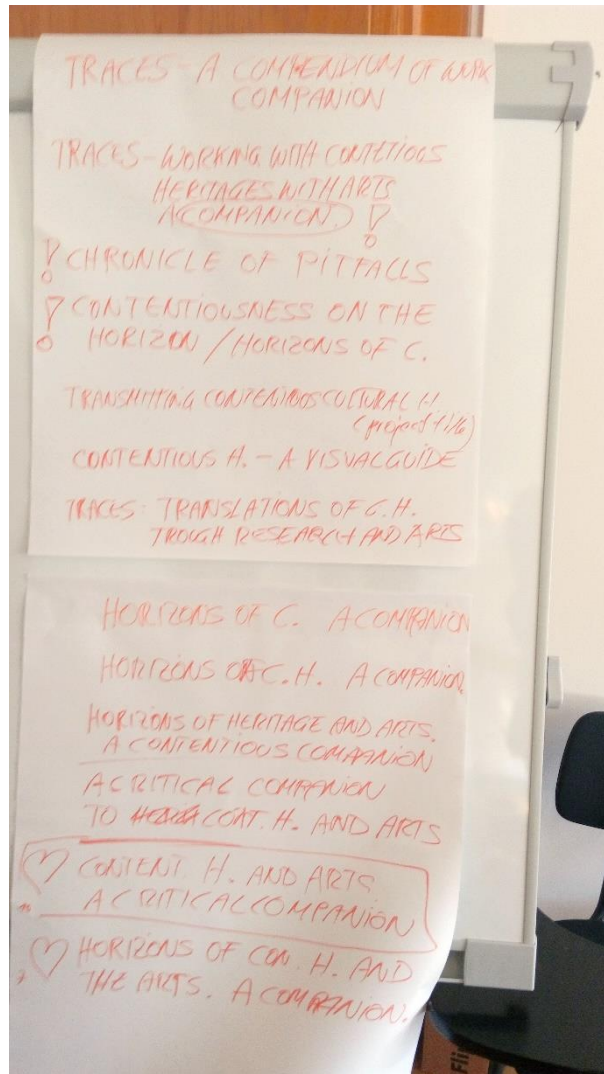 TRACES - A COMPENDIUM OF WORK
COMPANION
TRACES - WORKING WITH CONTETIOUS
HERITAGES WITH ARTS
A COMPANION. !
! CHRONICLE OF PITFALLS
! CONTENTIOUSNESS ON THE
HORIZON / HORIZONS OF C.
TRANSMITTING CONTENTIOUS CULTURAL H.
(project title)
CONTENTIOUS H. - A VISUAL GUIDE
TRACES: TRANSLATIONS OF C.H.
TROUGH RESEARCH AND ARTS
HORIZONS OF C. A COMPANION
HORIZONS OF C.H. A COMPANION.
HORIZONS OF HERITAGE AND ARTS.
A CONTENTIOUS COMPANION
A CRITICAL COMPANION
TO CONT. H. AND ARTS
CONTENT. H. AND ARTS
A CRITICAL COMPANION
HORIZONS OF CON. H. AND
THE ARTS. A COMPANION.
Fli